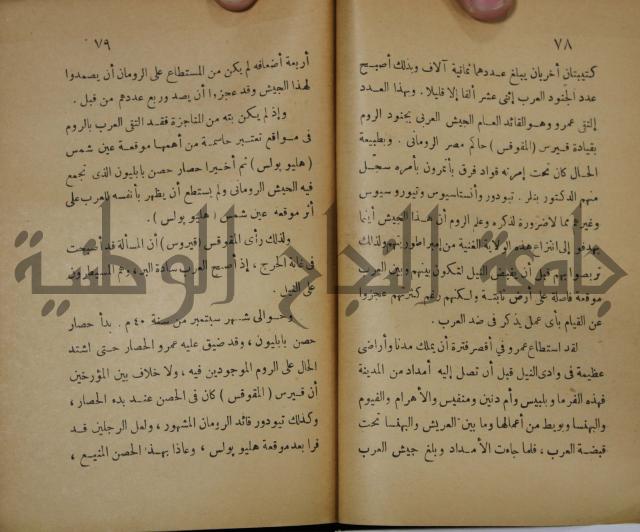 ٧٨
كتيبتان أخريان يبلغ عددها ثمانية آلاف وبذلك أصبح
عدد الجنود العرب إثنى عشر ألفا إلا قليلا . وبهذا العدد
إلتقى عمرو وهو القائد العام الجيش العربى بجنود الروم
بقيادة قيرس ( المقوقس ) حاكم مصر الرومانى . وبطبيعة
الحال كان تحت إمرته قواد فرق يأتمرون بأمره سجل
منهم الدكتور بتلر . تيودور وأنستاسيوس وتيوروسيوس
وغيرهم مما لا ضرورة لذكره وعلم الروم أن هذا الجيش إنما
يهدف إلى انتزاع هذه الولاية الغنية من إمبراطوريتهم ولذلك
تربصوا بهم قبل أن يفيض النيل لتكون بينهم وبين العرب
موقعة فاصلة على أرض ثابتة ولكنهم رغم كثرتهم عجزوا
عن القيام بأى عمل يذكر فى ضد العرب .
لقد استطاع عمرو فى أقصر فترة أن يملك مدنا وأراضى
عظيمة فى وادى النيل قبل أن تصل إليه أمداد من المدينة
فهذه الفرما وبلبيس وأم دنين ومنفيس والأهرام والفيوم
والبهنسا وبويط من أعمالها وما بين العريش والبهنسا تحت
قبضة العرب ، فلما جاءت الأمداد وبلغ جيش العرب
٧٩
أربعة أضعافه لم يكن من المستطاع على الرومان أن يصمدوا
لهذا الجيش وقد عجزوا أن يصد وربع عددهم من قبل .
وإذ لم يكن بته من المناجزة فقد التقى العرب بالروم
فى مواقع تعتبر حاسمة من أهمها موقعة عين شمس
( هليو بولس ) ثم أخيرا حصار حصن بابليون الذى تجمع
فيه الجيش الرومانى ولم يستطع أن يظهر بأنفسه للعرب على
أثر موقعه عين شمس ( هليو بولس ) .
ولذلك رأى المقوقس ( قيروس ) أن المسألة قد أصبحت
فى غاية الحرج ، إذ أصبح العرب سادة البر ، وهم المسيطرون
على النيل .
وحوالى شهر سبتمبر من سنة ٦٤٠ م . بدأ حصار
حصن بابليون ، وقد ضيق عليه عمرو الحصار حتى اشتد
الحال على الروم الموجودين فيه ، ولا خلاف بين المؤرخين
أن قيرس ( المقوقس ) كان فى الحصن عند بدء الحصار ،
وكذلك تيودور قائد الرومان المشهور ، ولعل الرجلين قد
فرا بعد موقعة هليو بولس ، وعاذا بهذا الحصن المنيع ،
جامعة النجاح الوطنية